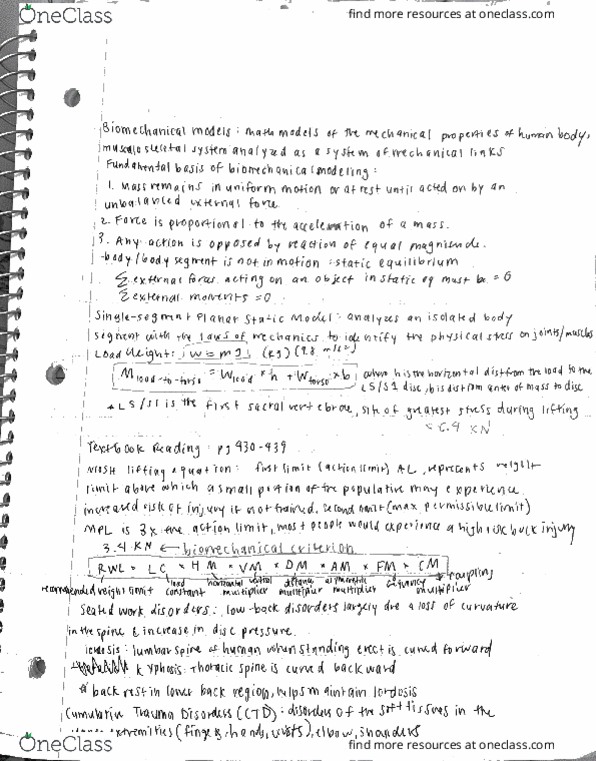 OneClass
find more resources at oneclass.com
Biomechanical models: math models of the mechanical properties of human body,
musculoskeletal system analyzed as a system of mechanical links
Fundamental basis of biomechanical modeling:
1. Mass remains in uniform motion or at rest until acted on by an
unbalanced external force
2. Force is proportional to the acceleration of a mass.
3. Any action is opposed by reaction of equal magnitude.
-body/body segment is not in motion = static equilibrium
Σ external forces acting on an object in static eq must be = 0
Σ external moments = 0
Single-segment Planar Static Model: analyzes an isolated body
segment with the laws of mechanics to identify the physical stress on joints/muscles
Load Weight: W = mg, (kg)(9.8 m/s²)
M load-to-torso = W load × h + W torso × b, where h is the horizontal dist from the load to the
L5/S1 disc, b is dist from center of mass to disc
* L5/S1 is the first sacral vertebrae, site of greatest stress during lifting
= 6.4 KN
Textbook Reading: pg 430-439
NIOSH lifting equation: first limit (action limit) AL, represents weight
limit above which a small portion of the population may experience
increased risk of injury if not trained. Second limit (max permissible limit)
MPL is 3x the action limit, most people would experience a high risk back injury
3.4 KN ← biomechanical criterion
RWL = LC × HM × VM × DM × AM × FM × CM
recommended weight limit load constant horizontal multiplier vertical multiplier distance multiplier asymmetric multiplier frequency coupling multiplier
Seated work disorders: low-back disorders largely due a loss of curvature
in the spine & increase in disc pressure.
lordosis: lumbar spine of human when standing erect is curved forward
kyphosis: thoracic spine is curved backward
* back rest in lower back region, helps maintain lordosis
Cumulative Trauma Disorders (CTD): disorders of the soft tissues in the
extremities (fingers, hands, wrists), elbow, shoulders
OneClass
find more resources at oneclass.com